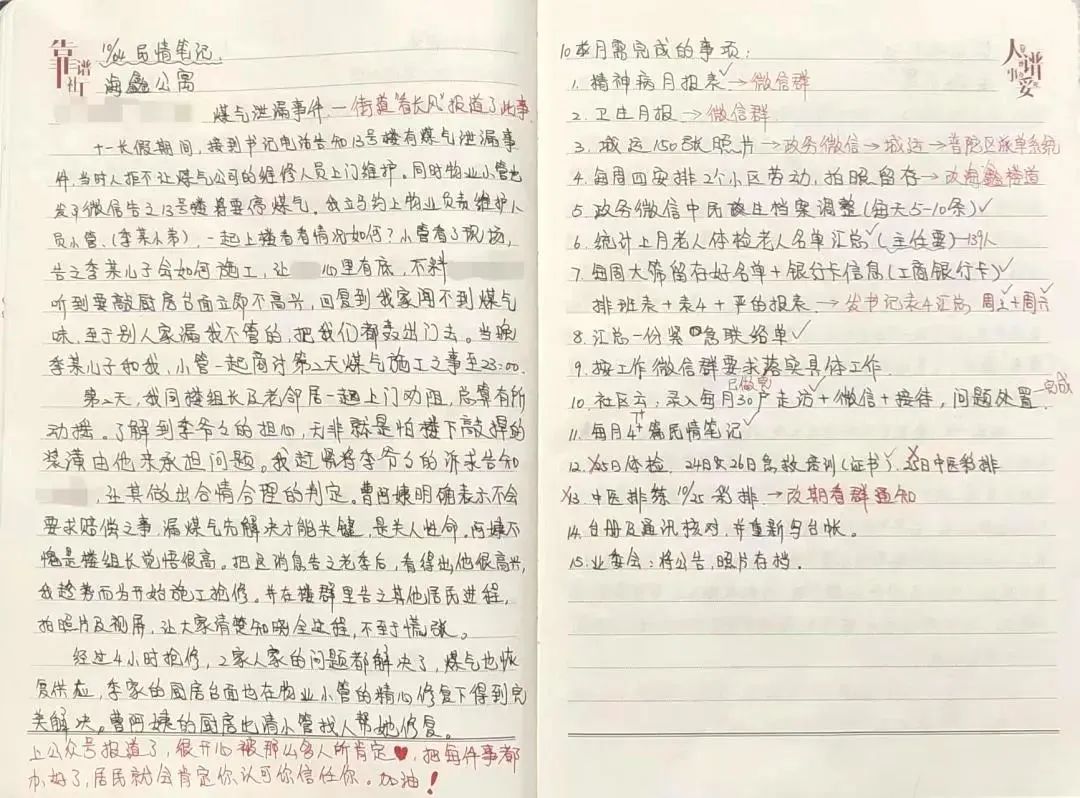 靠谱社工
10/04 民情笔记.
海鑫公寓
煤气泄漏事件 — 街道"春长风"报道了此事.
十一长假期间，接到书记电话告知13号楼有煤气泄漏事
件.当时人拒不让煤气公司的维修人员上门维护。同时物业小管也
发了微信告之13号楼将要停煤气。我立马约上物业负责维护人
员小管、(李某小弟)，一起上楼看看情况如何？小管看了现场，
告之李某儿子会如何施工，让 心里有底，不料
听到要敲厨房台面立即不高兴，回复到我家闻不到煤气
味，至于别人家漏我不管的，把我们都轰出门去。当晚
李某儿子和我，小管一起商讨第2天煤气施工之事至23:00.
第2天，我同楼组长及老邻居一起上门劝阻，总算有所
动摇。了解到李爷爷的担心，无非就是怕楼下敲掉的
装潢由他来承担问题。我赶紧将李爷爷的诉求告知
，让其做出合情合理的判定。曹阿姨明确表示不会
要求赔偿之事，漏煤气先解决才能关键，是夫人性命，阿姨不
愧是楼组长觉悟很高。把这消息告之老李后，看得出他很高兴，
我趁势而为开始施工抢修。并在楼群里告之其他居民进程，
拍照片及视屏，让大家清楚知晓全过程，不至于慌张。
经过4小时抢修，2家人家的问题都解决了，煤气也恢
复供应，李家的厨房台面也在物业小管的精心修复下得到完
美解决。曹阿姨的厨房也请小管找人帮她修复。
上公众号报道了，很开心被那么多人所肯定♥，把每件事都
办好了，居民就会肯定你认可你信任你。加油！
人靠谱事妥
10月需完成的事项：
1. 精神病月报表✓→微信群
2. 卫生月报→微信群
3. 城运150张照片→政务微信→城运→普陀区派单系统
4. 每周四安排2个小区劳动，拍照留存→改海鑫楼道
5. 政务微信中民政生档案调整(每天5-10条)✓
6. 统计上月老人体检老人名单汇总✓(主任要)—139人
7. 每周大筛留存好名单+银行卡信息(工商银行卡)✓
排班表+表4+严的报表→发书记表4汇总，周三+周六
8. 汇总一份紧急联络单✓
9. 按工作微信群要求落实具体工作.
已做完
10. 社区云：录入每月30户走访+微信+接待，问题处置—完成
11. 每月4个篇民情笔记✓
12. ×25日体检，24日&26日急救培训(证书)✓，×25日中医彩排
×13. 中医排练 10/25 彩排.→改期看群通知
14. 台册及通讯核对，并重新写台帐。
15. 业委会：将公告，照片存档.